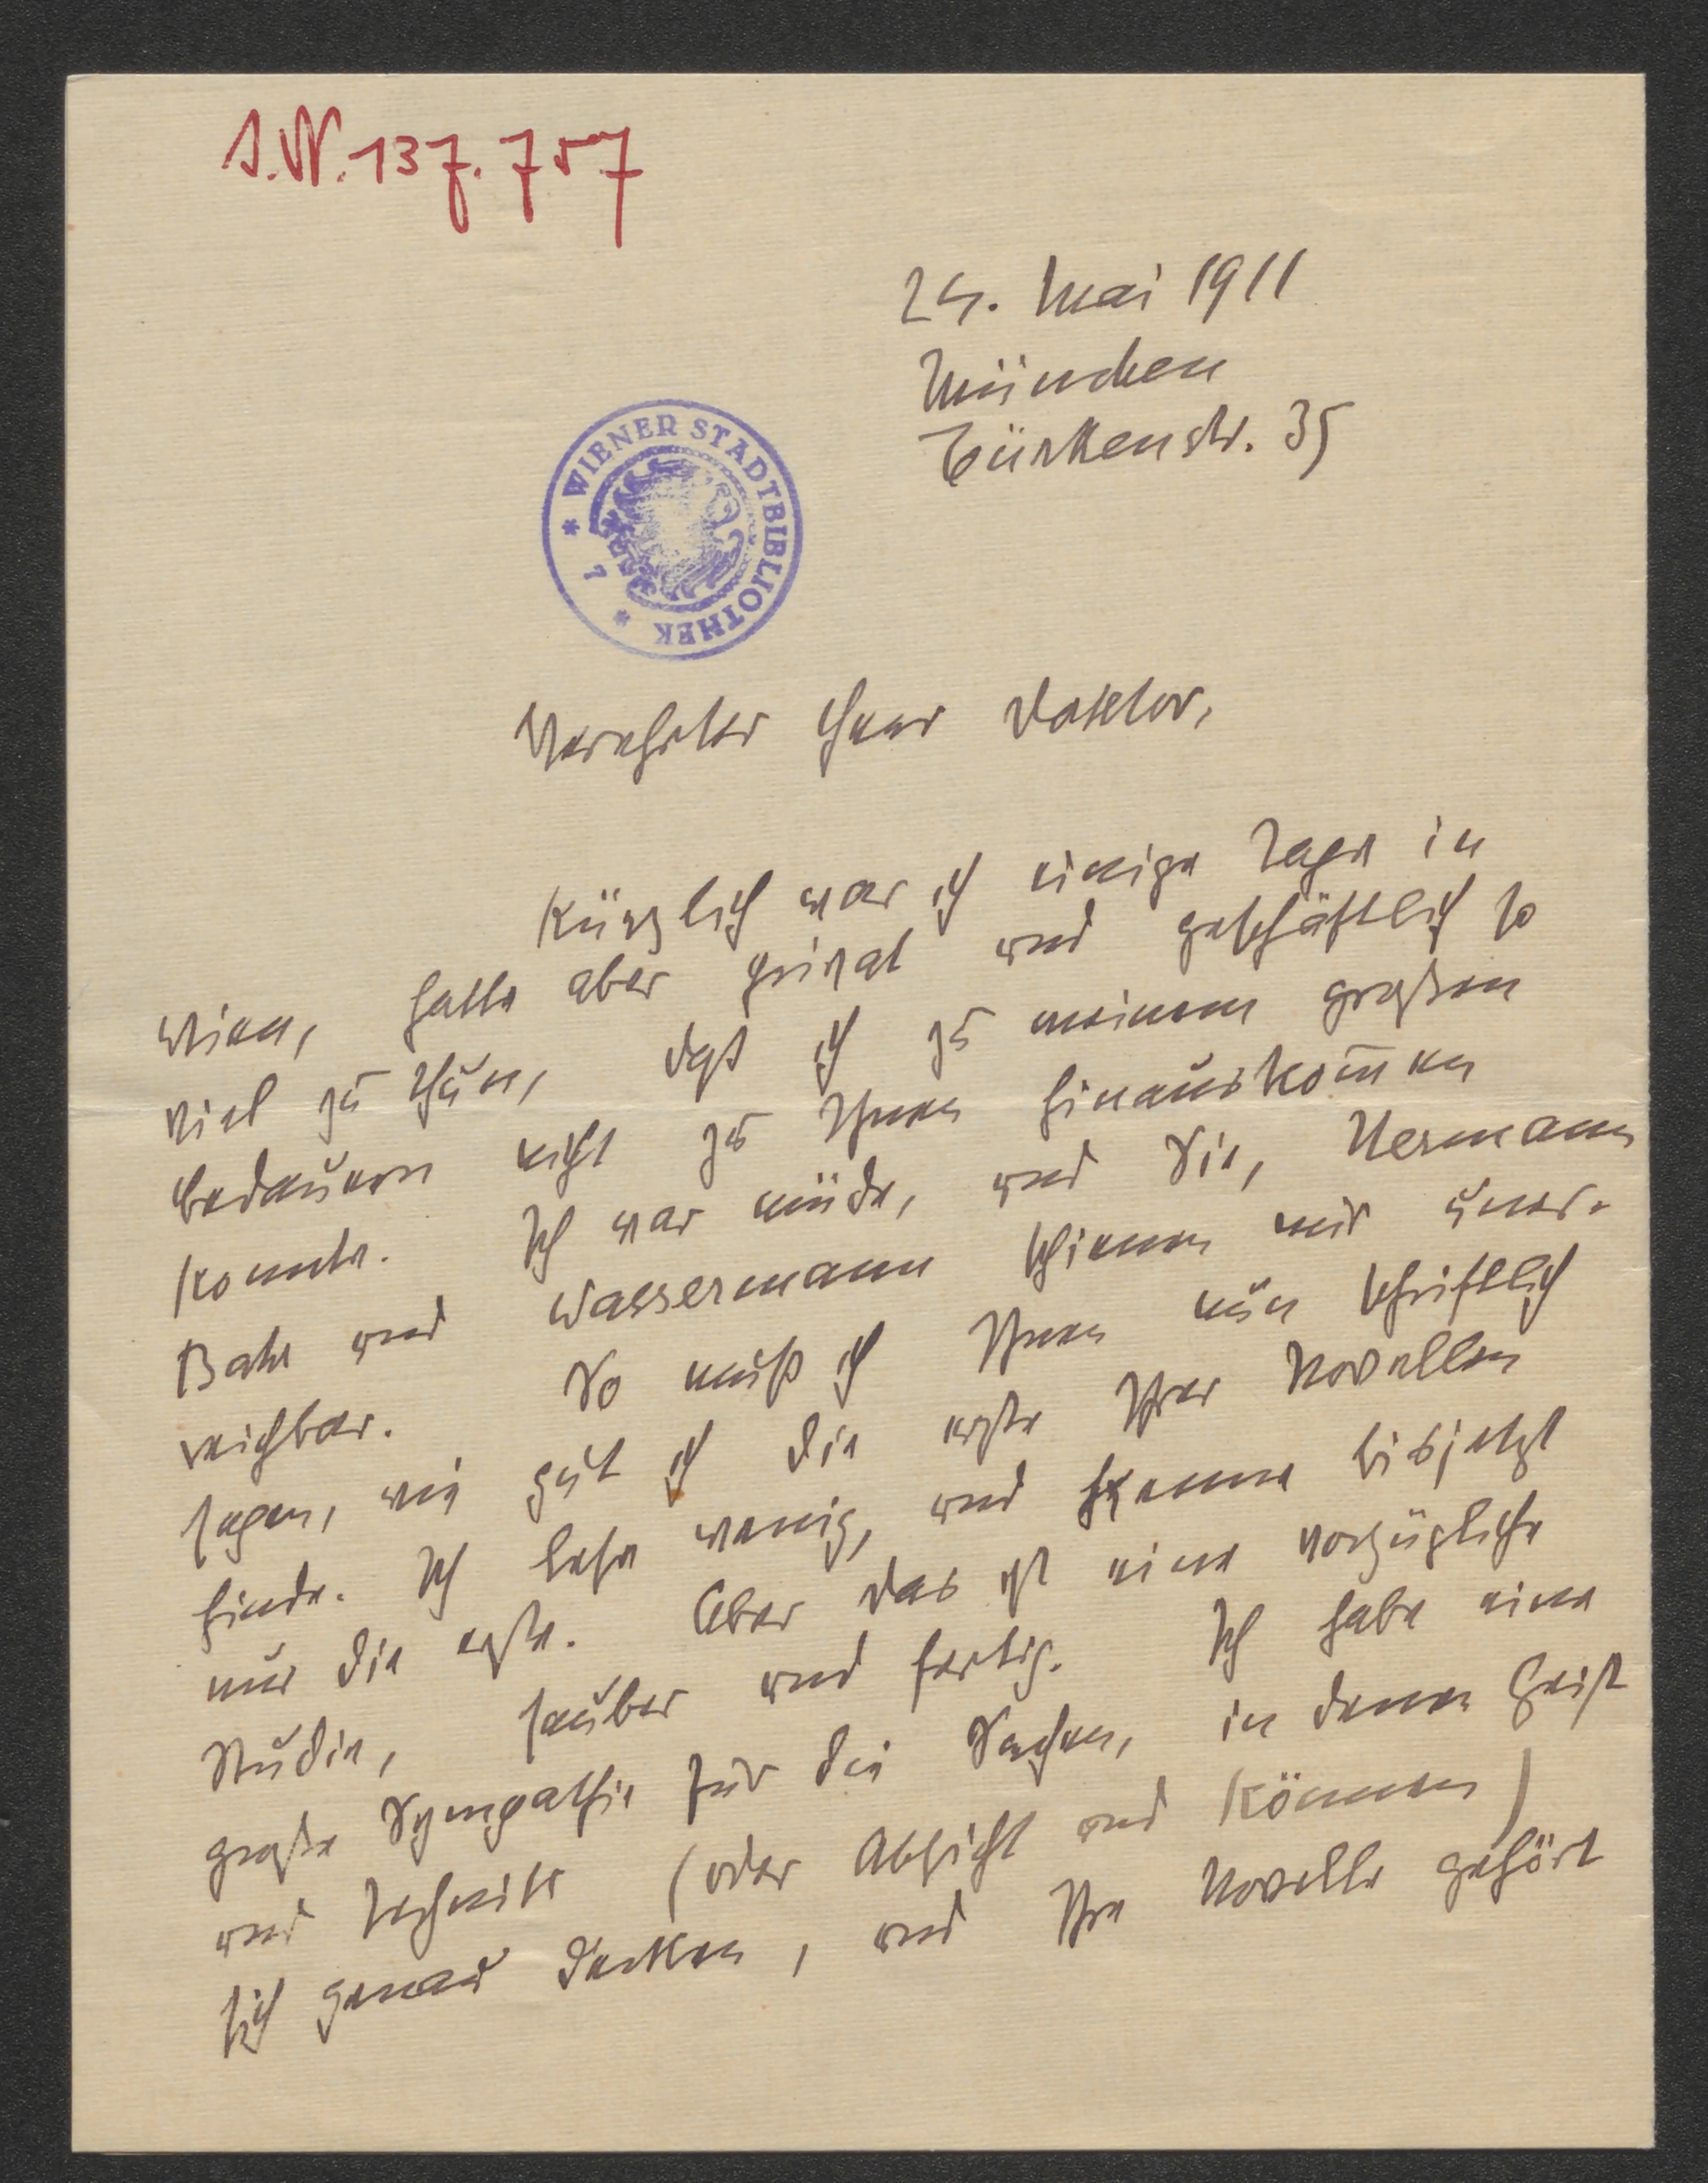 I.N. 137.757
24. Mai 1911
München
Türkenstr. 35
* WIENER STADTBIBLIOTHEK * 7
Verehrter Herr Doktor,
Kürzlich war ich einige Tage in
Wien, hatte aber privat und geschäftlich so
viel zu thun, daß ich zu meinem großen
Bedauern nicht zu Ihnen hinauskom̄en
konnte. Ich war müde, und Sie, Hermann
Bahr und Wassermann schienen mir uner-
reichbar. So muß ich Ihnen nun schriftlich
sagen, wie gut ich die erste Ihrer Novellen
finde. Ich lese wenig, und kenne bisjetzt
nur die erste. Aber das ist eine vorzügliche
Studie, sauber und fertig. Ich habe eine
große Sympathie für die Sachen, in denen Geist
und Technik (oder Absicht und Können)
sich genau decken, und Ihre Novelle gehört